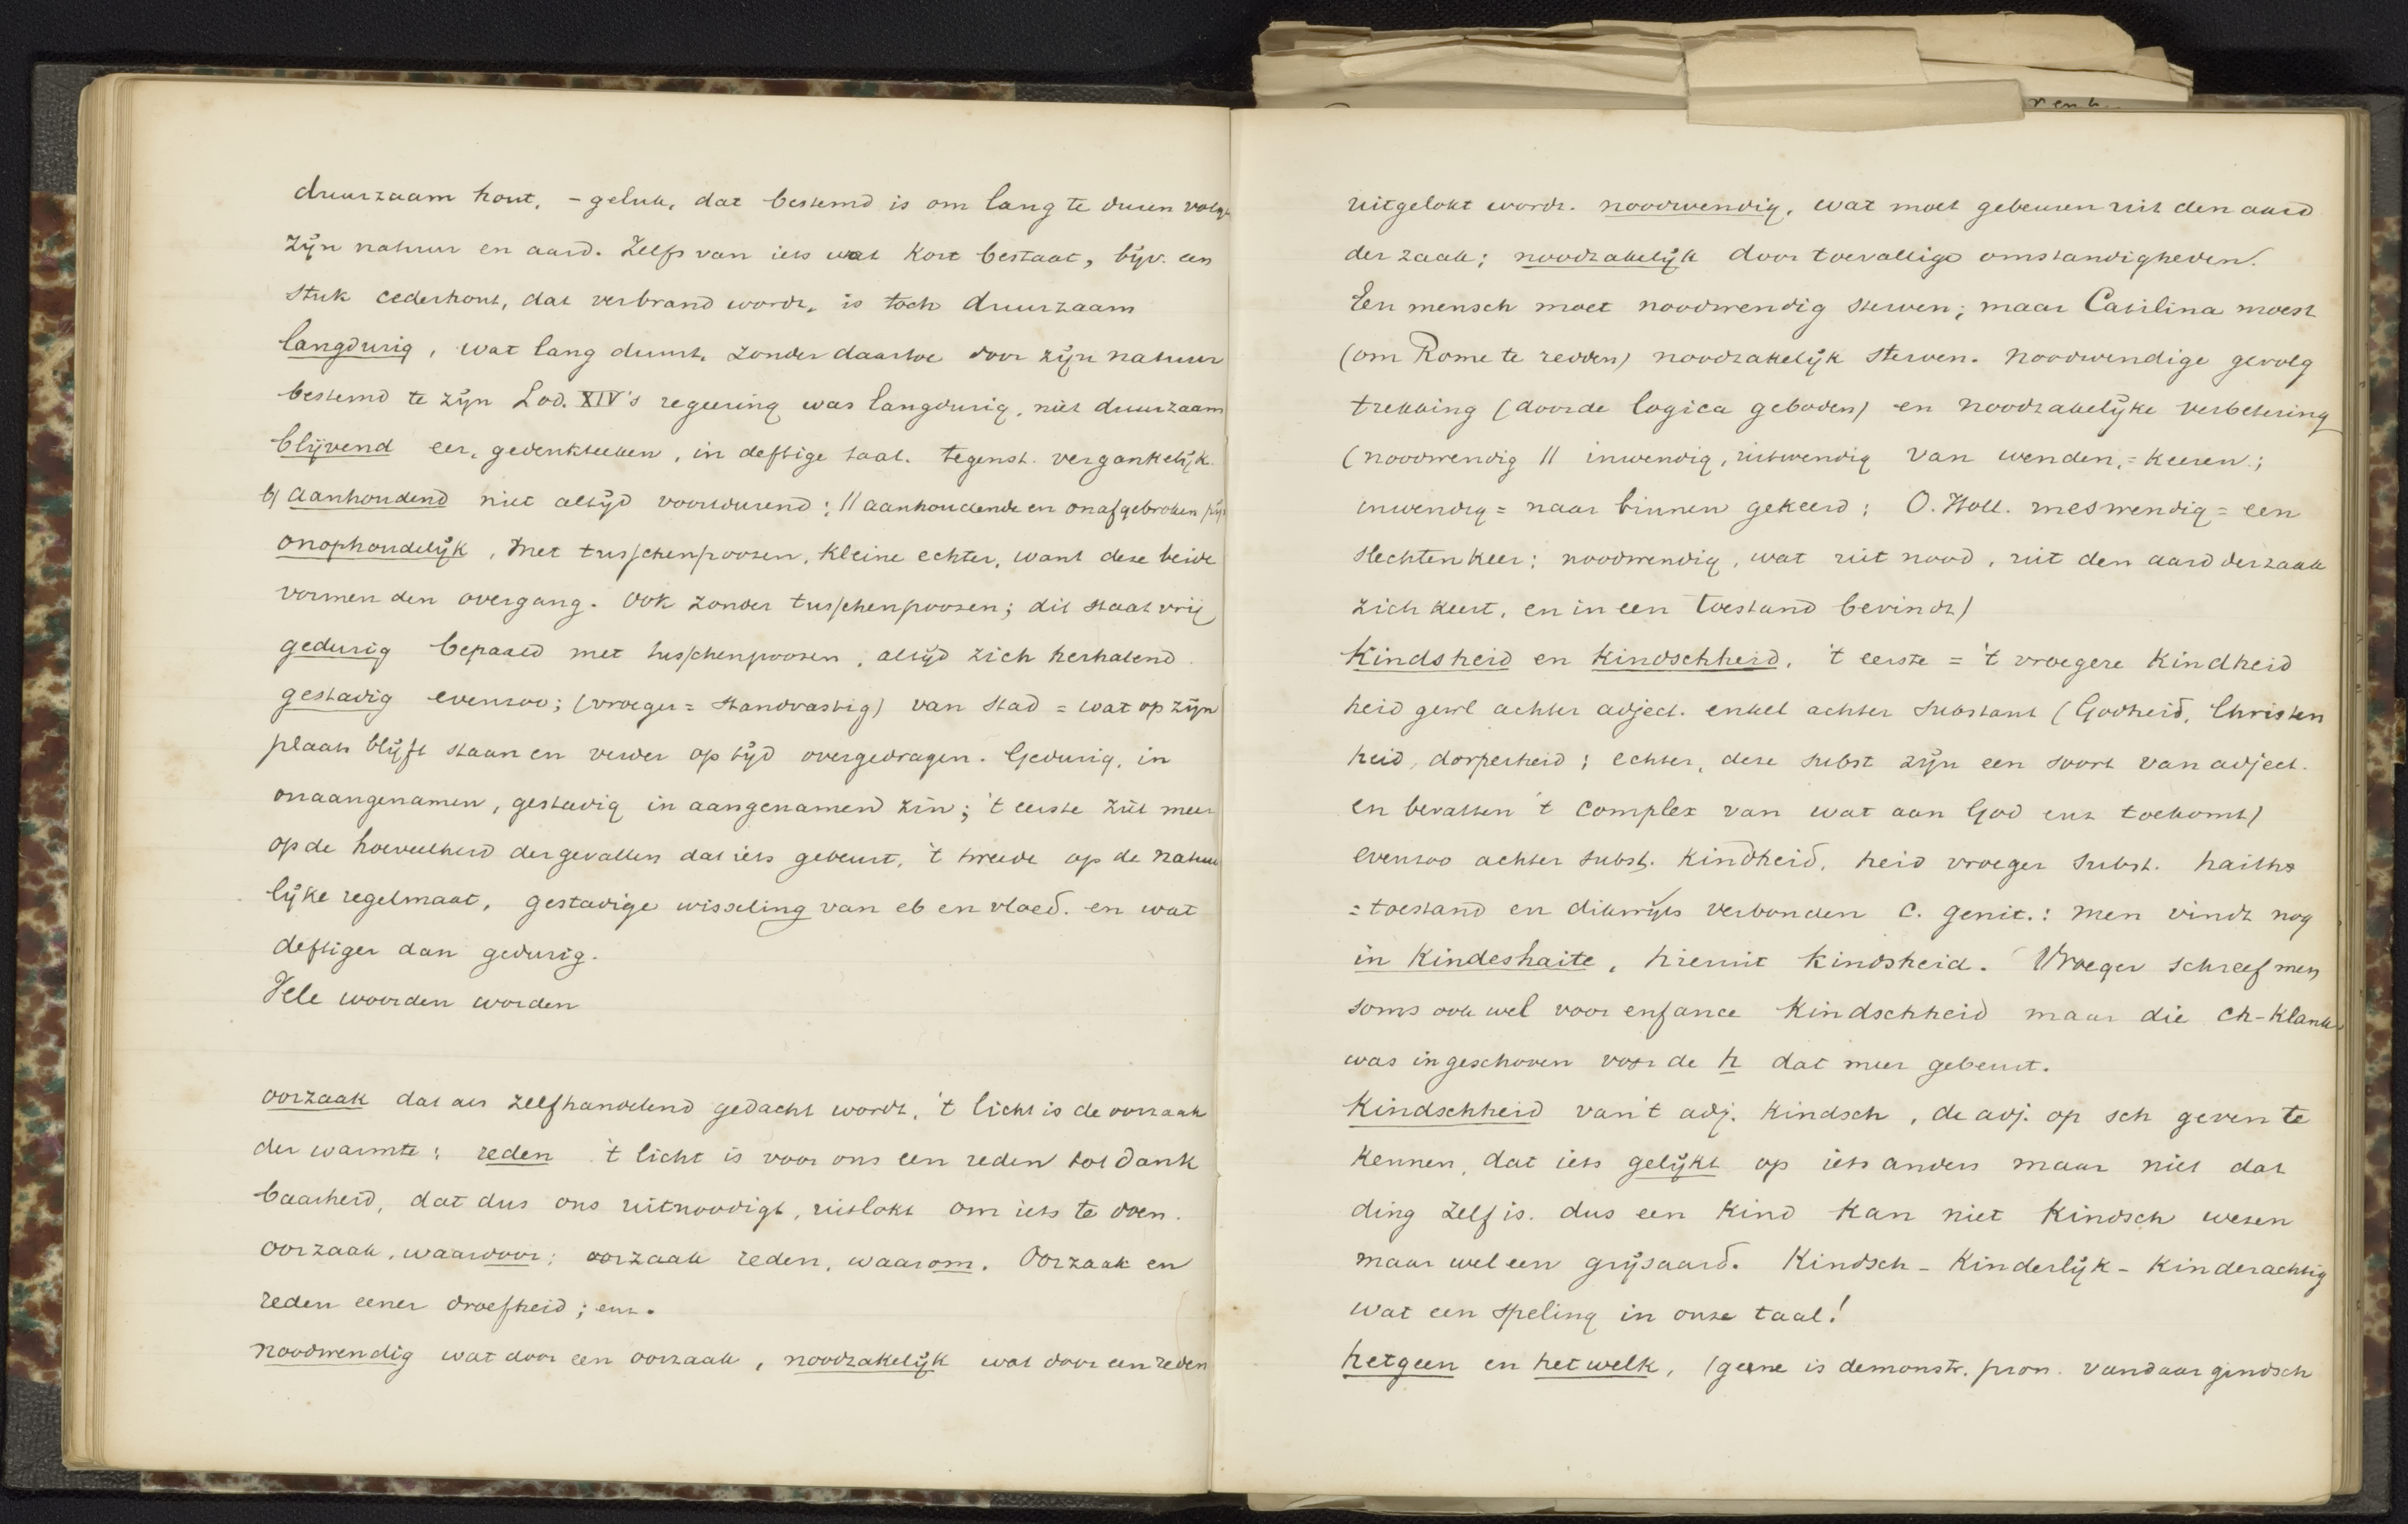 duurzaam hout, - geluk, dat bestemd is om lang te duren volgs
zijn natuur en aard. Zelfs van iets wat kort bestaat, bijv. een
stuk cederhout, dat verbrand wordt, is toch duurzaam
langdurig, wat lang duurt, zonder daartoe door zijn natuur
bestemd te zijn Lod. XIV's regeering was langdurig, niet duurzaam
blijvend eer, gedenkteeken, in deftige taal. tegenst. vergankelijk.
b) aanhoudend niet altijd voortdurend; // aanhoudende en onafgebroken pijn
onophoudelijk, met tusschenpoozen, kleine echter, want deze beide
vormen den overgang. Ook zonder tusschenpoozen; dit staat vrij
gedurig bepaald met tusschenpoozen, altijd zich herhalend.
gestadig evenzoo; (vroeger = standvastig) van stad = wat op zijn
plaats blijft staan en verder op tijd overgedragen. Gedurig, in
onaangenamen, gestadig in aangenamen zin; 't eerste ziet meer
op de hoeveelheid der gevallen dat iets gebeurt, 't tweede op de natuur
lijke regelmaat, gestadige wisseling van eb en vloed. en wat
deftiger dan gedurig.
Vele woorden worden
oorzaak dat als zelfhandelend gedacht wordt, 't licht is de oorzaak
der warmte; reden 't licht is voor ons een reden tot dank
baarheid, dat dus ons uitnoodigt, uitlokt om iets te doen.
oorzaak, waardoor; oorzaak reden, waarom. Oorzaak en
reden eener droefheid; enz.
noodwendig wat door een oorzaak, noodzakelijk wat door een reden
uitgelokt wordt. noodwendig, wat moet gebeuren uit den aard
der zaak; noodzakelijk door toevallige omstandigheden.
Een mensch moet noodwendig sterven; maar Catilina moest
(om Rome te redden) noodzakelijk sterven. Noodwendige gevolg
trekking (door de logica geboden) en noodzakelijke verbetering
(noodwendig // inwendig, uitwendig van wenden, = keeren;
inwendig = naar binnen gekeerd; O. Holl. meswendig = een
slechten keer; noodwendig, wat uit nood, uit den aard der zaak
zich keert, en in een toestand bevindt)
Kindsheid en Kindschheid, 't eerste = 't vroegere Kindheid
heid gew. achter adject. enkel achter substant (Godheid, Christen
heid, dorperheid; echter, deze subst zijn een soort van adject.
en bevatten 't complex van wat aan God enz toekomt)
evenzoo achter subst. Kindheid, heid vroeger subst. haiths
= toestand en dikwijls verbonden c. genit.: men vindt nog
in Kindeshaite, hieruit kindsheid. Vroeger schreef men
soms ook wel voor enfance Kindschheid maar die ch-klank
was ingeschoven voor de h dat meer gebeurt.
Kindschheid van 't adj. Kindsch, de adj. op sch geven te
kennen, dat iets gelijkt op iets anders maar niet dat
ding zelf is. dus een Kind kan niet Kindsch wezen
maar wel een grijsaard. Kindsch - Kinderlijk - Kinderachtig
wat een speling in onze taal!
hetgeen en hetwelk, (geene is demonstr. pron. vandaar gindsch